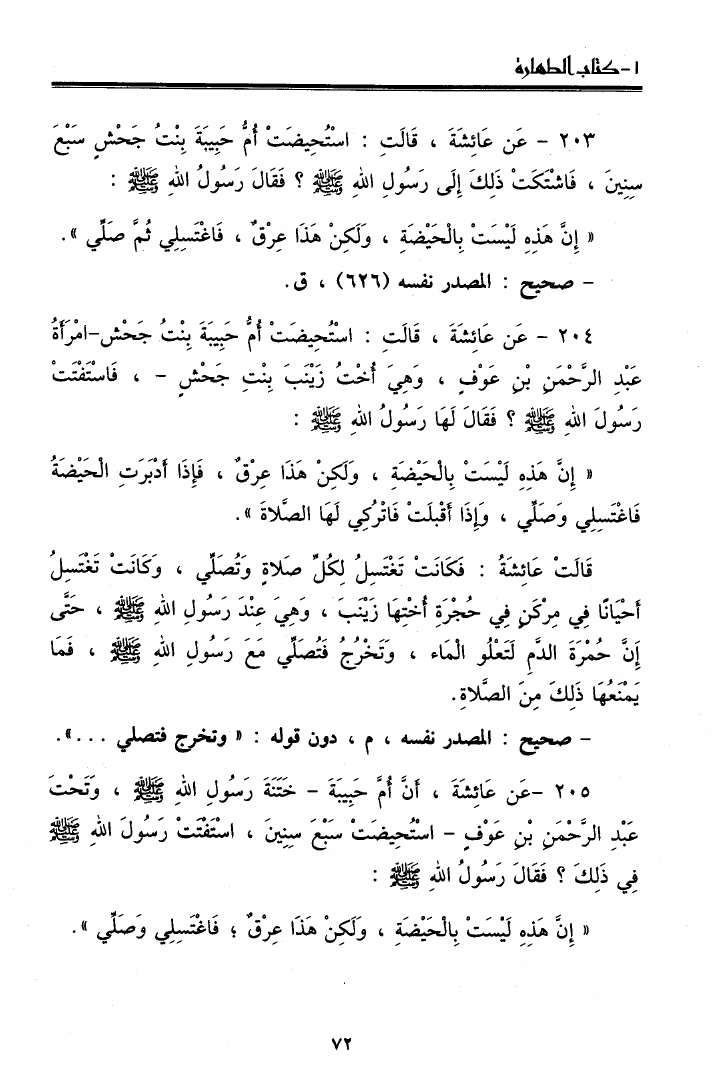 ١- كتاب الطهارة
٢٠٣ - عَن عَائِشَةَ ، قَالَتِ : اسْتُحِيضَتْ أُمُّ حَبِيبَةَ بِنْتُ جَحْشٍ سَبْعَ
سِنِينَ ، فَاشْتَكَتْ ذَلِكَ إِلَى رَسُولِ اللهِ ﷺ ؟ فَقَالَ رَسُولُ اللهِ ﷺ :
« إِنَّ هَذِهِ لَيْسَتْ بِالْحَيْضَةِ ، وَلَكِنْ هَذَا عِرْقٌ ، فَاغْتَسِلِي ثُمَّ صَلِّي ».
- صحيح : المصدر نفسه (٦٢٦) ، ق.
٢٠٤ - عَن عَائِشَةَ ، قَالَتِ : اسْتُحِيضَتْ أُمُّ حَبِيبَةَ بِنْتُ جَحْش-امْرَأَةُ
عَبْدِ الرَّحْمَنِ بْنِ عَوْفٍ ، وَهِيَ أُخْتُ زَيْنَبَ بِنْتِ جَحْشٍ - ، فَاسْتَفْتَتْ
رَسُولَ اللهِ ﷺ ؟ فَقَالَ لَهَا رَسُولُ اللهِ ﷺ :
« إِنَّ هَذِهِ لَيْسَتْ بِالْحَيْضَةِ ، وَلَكِنْ هَذَا عِرْقٌ ، فَإِذَا أَدْبَرَتِ الْحَيْضَةُ
فَاغْتَسِلِي وَصَلِّي ، وَإِذَا أَقْبَلَتْ فَاتْرُكِي لَهَا الصَّلاةَ ».
قَالَتْ عَائِشَةُ : فَكَانَتْ تَغْتَسِلُ لِكُلِّ صَلاةٍ وَتُصَلِّي ، وَكَانَتْ تَغْتَسِلُ
أَحْيَانًا فِي مِرْكَنٍ فِي حُجْرَةِ أُخْتِهَا زَيْنَبَ ، وَهِيَ عِنْدَ رَسُولِ اللهِ ﷺ ، حَتَّى
إِنَّ حُمْرَةَ الدَّمِ لَتَعْلُو الْمَاء ، وَتَخْرُجُ فَتُصَلِّي مَعَ رَسُولِ اللهِ ﷺ ، فَمَا
يَمْنَعُهَا ذَلِكَ مِنَ الصَّلَاةِ.
- صحيح : المصدر نفسه ، م ، دون قوله : « وتخرج فتصلي ...».
٢٠٥ -عَن عَائِشَةَ ، أَنَّ أُمَّ حَبِيبَةَ - خَتَنَةَ رَسُولِ اللهِ ﷺ ، وَتَحْتَ
عَبْدِ الرَّحْمَنِ بْنِ عَوْفٍ - اسْتُحِيضَتْ سَبْعَ سِنِينَ ، اسْتَفْتَتْ رَسُولَ اللهِ ﷺ
فِي ذَلِكَ ؟ فَقَالَ رَسُولُ اللهِ ﷺ :
« إِنَّ هَذِهِ لَيْسَتْ بِالْحَيْضَةِ ، وَلَكِنْ هَذَا عِرْقٌ ؛ فَاغْتَسِلِي وَصَلِّي ».
٧٢